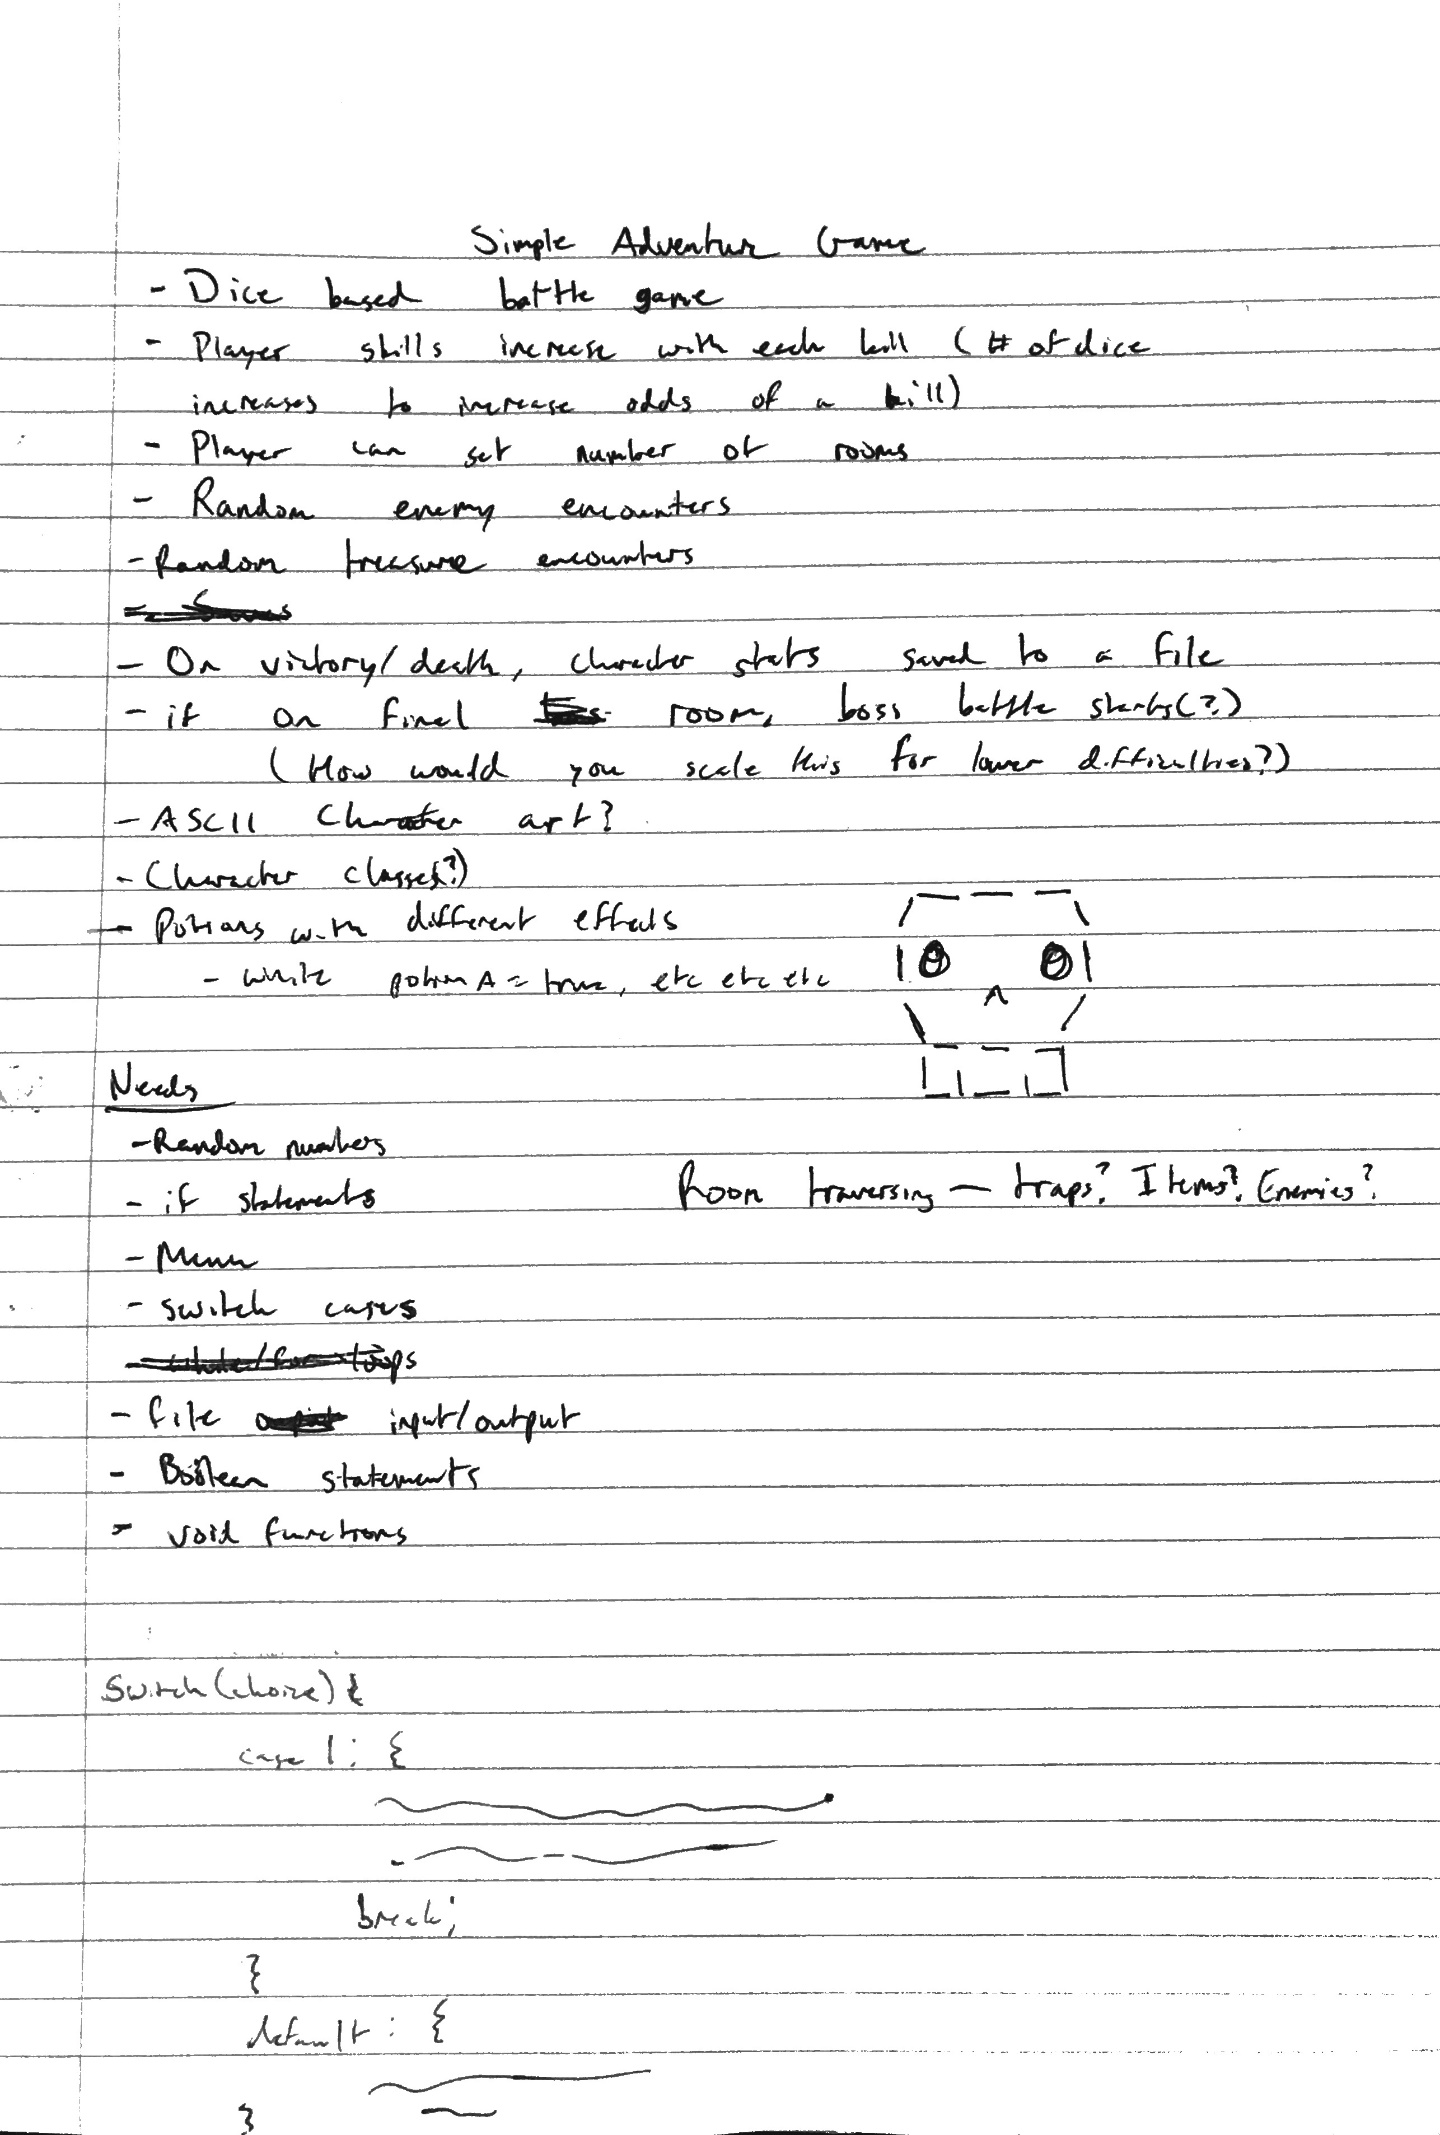 Simple Adventure Game
- Dice based battle game
- Player skills increase with each kill (# of dice
increases to increase odds of a kill)
- Player can set number of rooms
- Random enemy encounters
- Random treasure encounters
- On victory/death, character stats saved to a file
- if on final room, boss battle starts(?)
(How would you scale this for lower difficulties?)
- ASCII Character art?
- Character classes?)
- Potions with different effects
- while potion A = true, etc etc etc
Needs
- Random numbers
- if statements
Room traversing — traps? Items? Enemies?
- Menu
- switch cases
- while/for loops
- file input/output
- Boolean statements
- void functions
Switch(choice){
case 1: {
break;
}
default: {
}